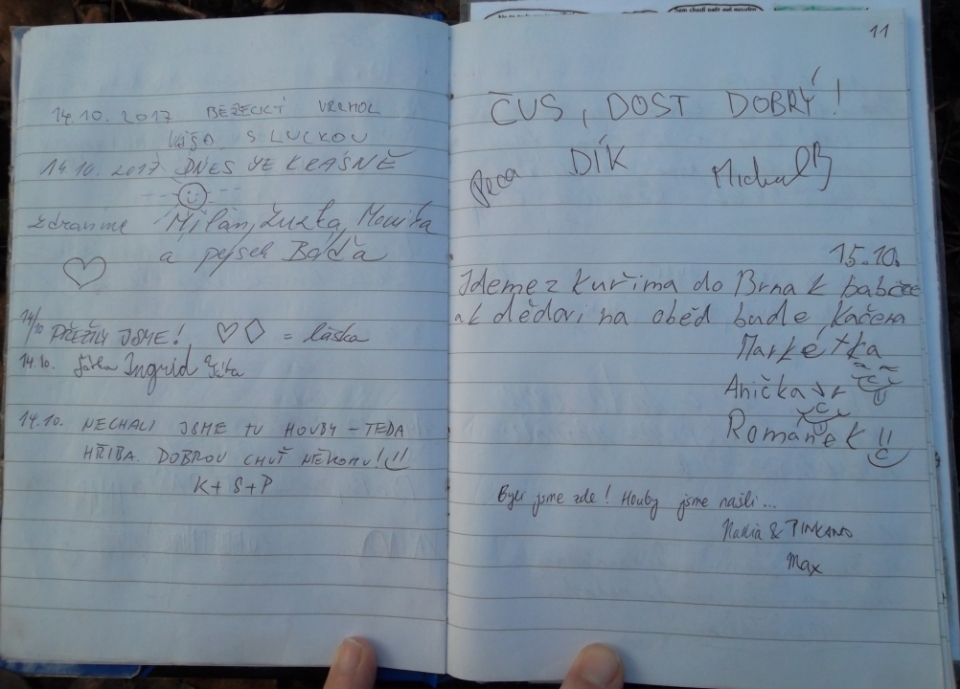 14.10.2017 BĚŽECKÝ VRCHOL
S LUCKOU
14.10.2017 DNES JE KRÁSNĚ
zdravíme Milan, Zuzka, Monika
a pejsek Baďa
14/10 PŘEŽILY JSME! = láska
14.10. Šárka Ingrid
14.10. NECHALI JSME TU HOUBY – TEDA
HŘIBA. DOBROU CHUŤ NĚKOMU!
K + S + P
11
ČUS, DOST DOBRÝ!
DÍK
Peca Michal
15.10.
Jdeme z Kuřima do Brna k babičce
a k dědovi na oběd bude kačena
Markétka
Anička
Románek
Byli jsme zde! Houby jsme našli...
&
Max